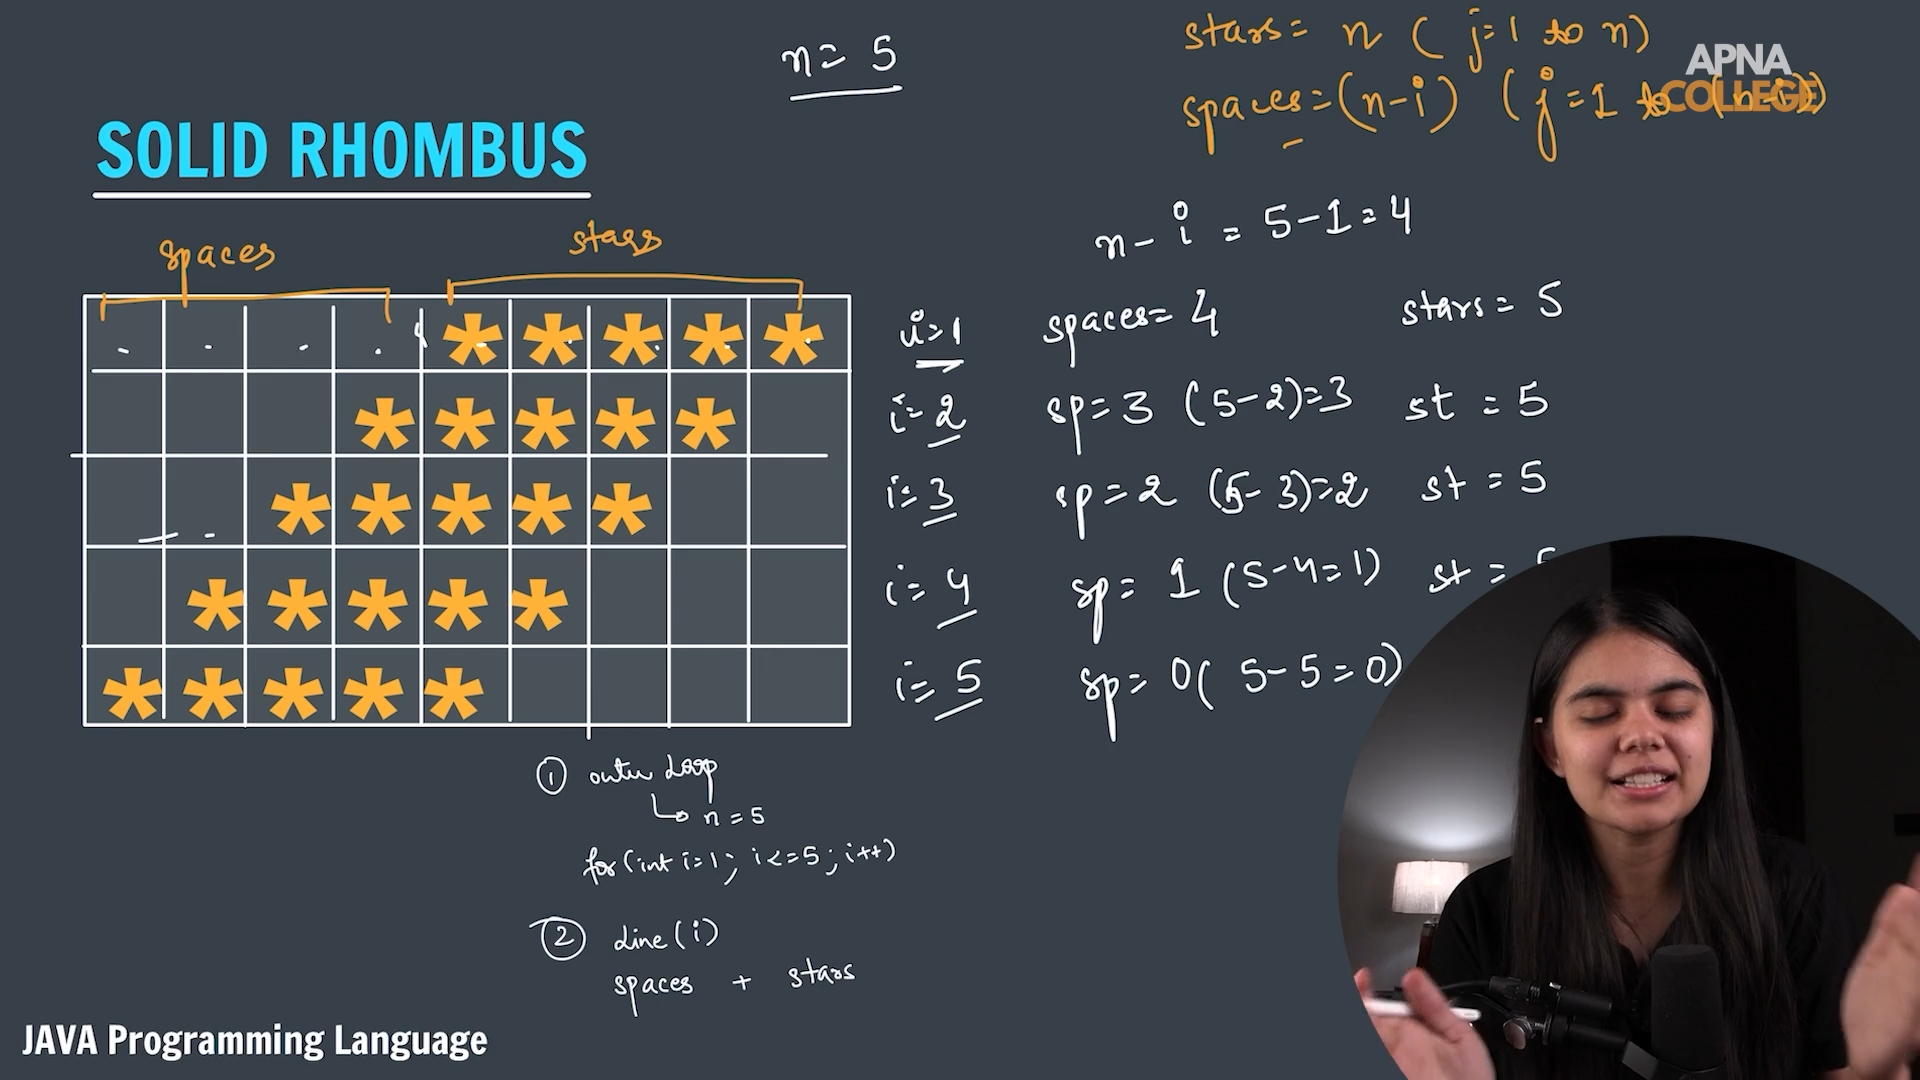 n = 5
stars = n ( j=1 to n)
APNA
COLLEGE
spaces = (n-i) ( j = 1 to (n-i))
SOLID RHOMBUS
n - i = 5-1 = 4
spaces
stars
i=1 spaces = 4 stars = 5
i=2 sp = 3 (5-2)=3 st = 5
i=3 sp = 2 (5-3)=2 st = 5
i=4 sp = 1 (5-4=1) st =
i=5 sp = 0( 5-5=0)
1 outer Loop
n = 5
for(int i=1; i<=5; i++)
2 Line(i)
spaces + stars
JAVA Programming Language